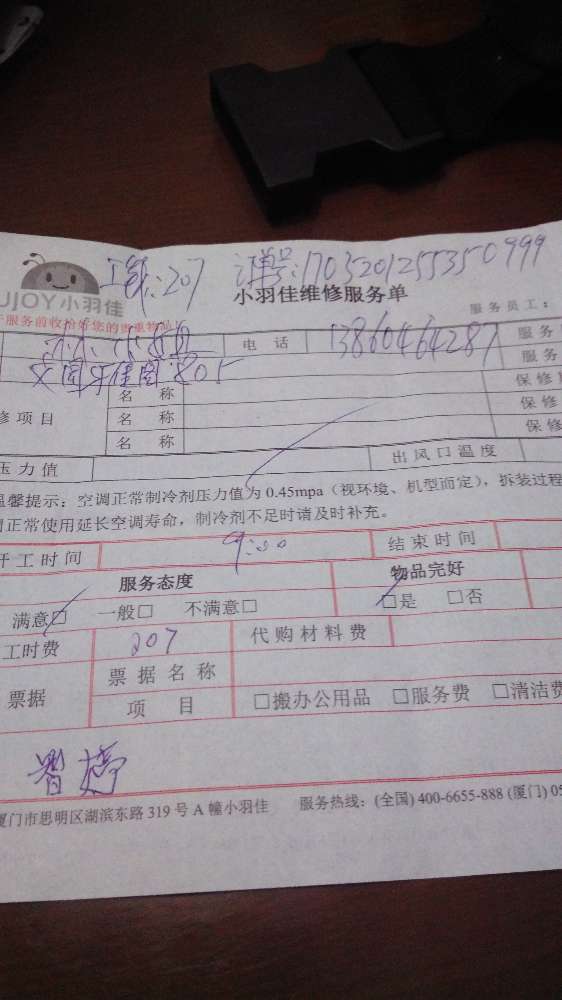 工龄:207 订单号:170320125535 0999
UJOY小羽佳
小羽佳维修服务单
服务前收拾好您的贵重物品
服务员工:
电话 13860464287 服务
文园 佳园 805 服务
名称 保修
修项目 名称 保修
名称 保修
压力值 出风口温度
温馨提示:空调正常制冷剂压力值为 0.45mpa(视环境、机型而定),拆装过程
调正常使用延长空调寿命,制冷剂不足时请及时补充。
开工时间 9:00 结束时间
服务态度 物品完好
满意☑ 一般□ 不满意□ ☑是 □否
工时费 207 代购材料费
票据 票据名称
项目 □搬办公用品 □服务费 □清洁费
厦门市思明区湖滨东路 319 号 A 幢小羽佳 服务热线:(全国) 400-6655-888 (厦门) 05